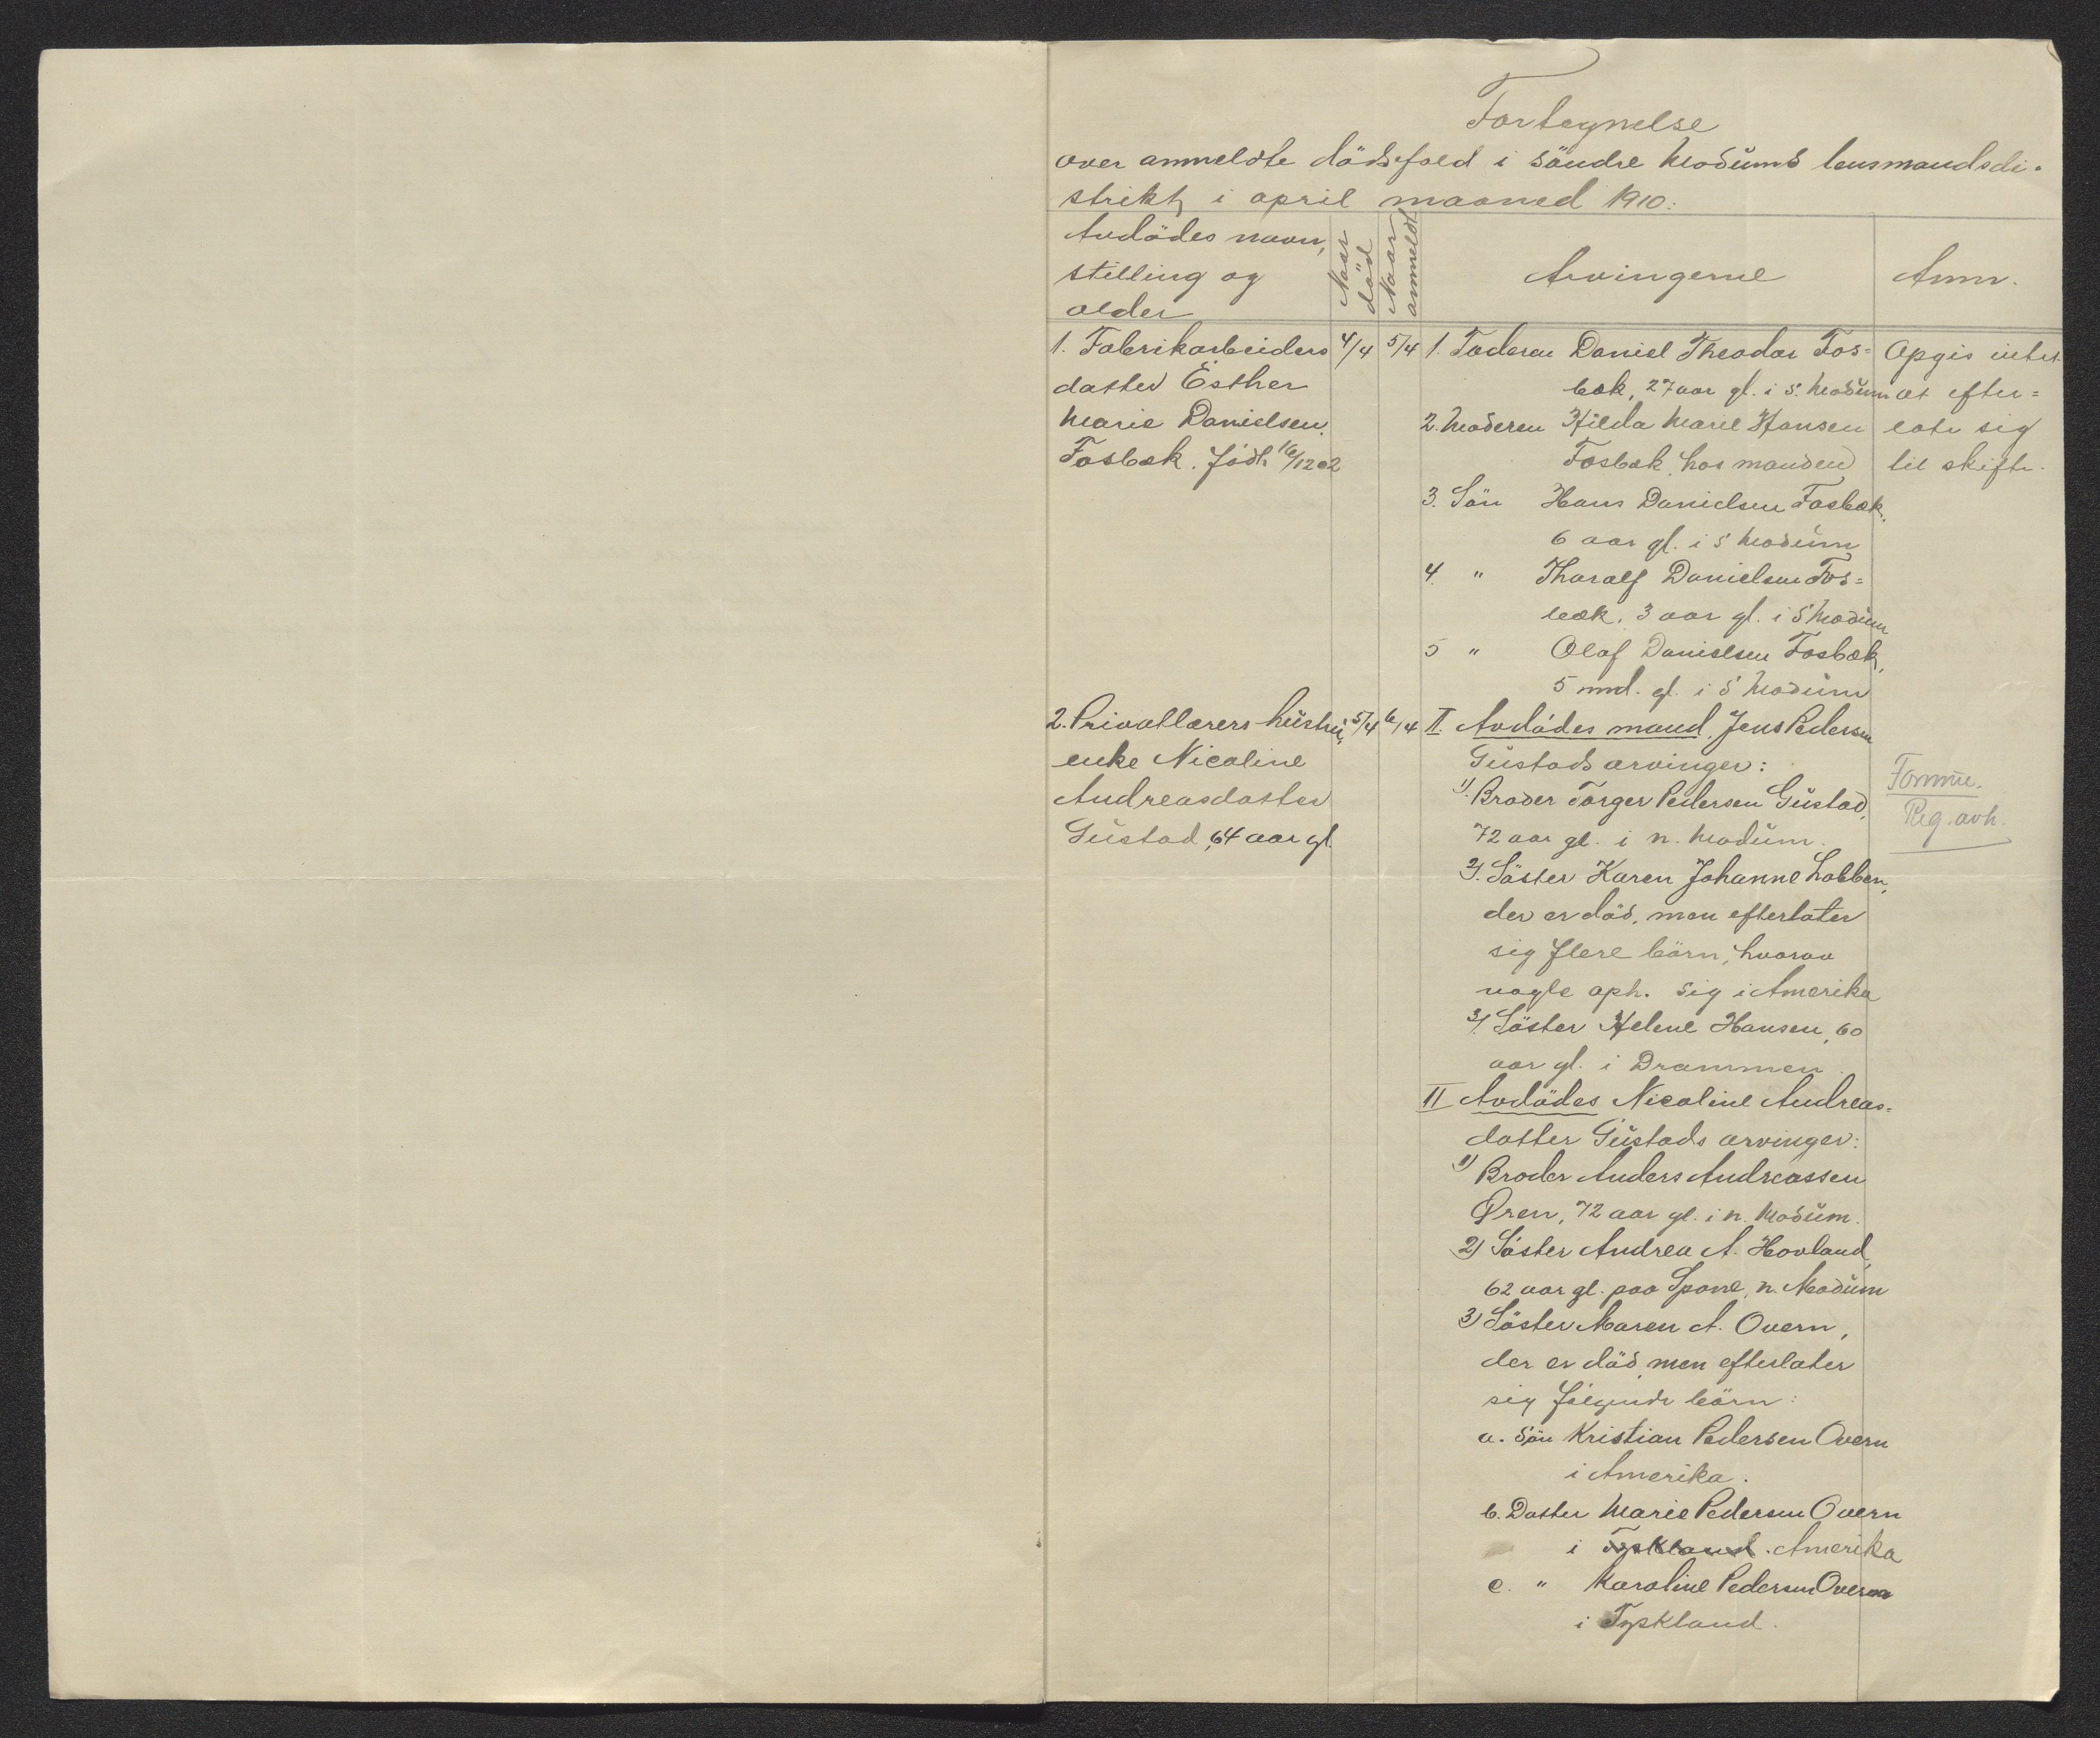 Fortegnelse
over anmeldte dödsfald i söndre Modums lensmandsdi-
strikt i april maaned 1910:
Avdödes navn,
stilling og
alder
Naar
död
Naar
anmeldt
Arvingerne
Anm.
1. Fabrikarbeiders
datter Esther
Marie Danielsen
Fosbæk. Född 16/12 02
4/4
5/4
1. Faderen Daniel Theodor Fos=
bæk, 27 aar gl. i S. Modum
2. Moderen Hilda Marie Hansen
Fosbæk, hos manden
3. Sön Hans Danielsen Fosbæk,
6 aar gl. i S Modum
4. " Tharalf Danielsen Fos=
bæk, 3 aar gl. i S Modum
5 " Olaf Danielsen Fosbæk,
5 mnd. gl. i S Modum
Opgis intet
at efter=
late sig
til skifte.
2. Privatlærers hustru,
enke Nicoline
Andreasdatter
Gustad, 64 aar gl.
5/4
6/4
I. Avdödes mand, Jens Pedersen
Gustads arvinger:
1). Broder Torger Pedersen Gustad,
72 aar gl. i n. Modum.
2). Söster Karen Johanne Lobben,
der er död, men efterlater
sig flere börn, hvorav
nogle oph. sig i Amerika
3). Söster Helene Hansen, 60
aar gl. i Drammen.
II Avdödes Nicoline Andreas-
datter Gustads arvinger:
1) Broder Anders Andreassen
Øren, 72 aar gl. i n. Modum.
2) Söster Andrea A. Hovland,
62 aar gl. paa Spone, n. Modum
3) Söster Maren A. Overn,
der er död, men efterlater
sig följende börn:
a. Sön Kristian Pedersen Overn
i Amerika.
b. Datter Marie Pedersen Overn
i Tyskland. Amerika
c. " Karoline Pedersen Overn
i Tyskland.
Reg. avh.